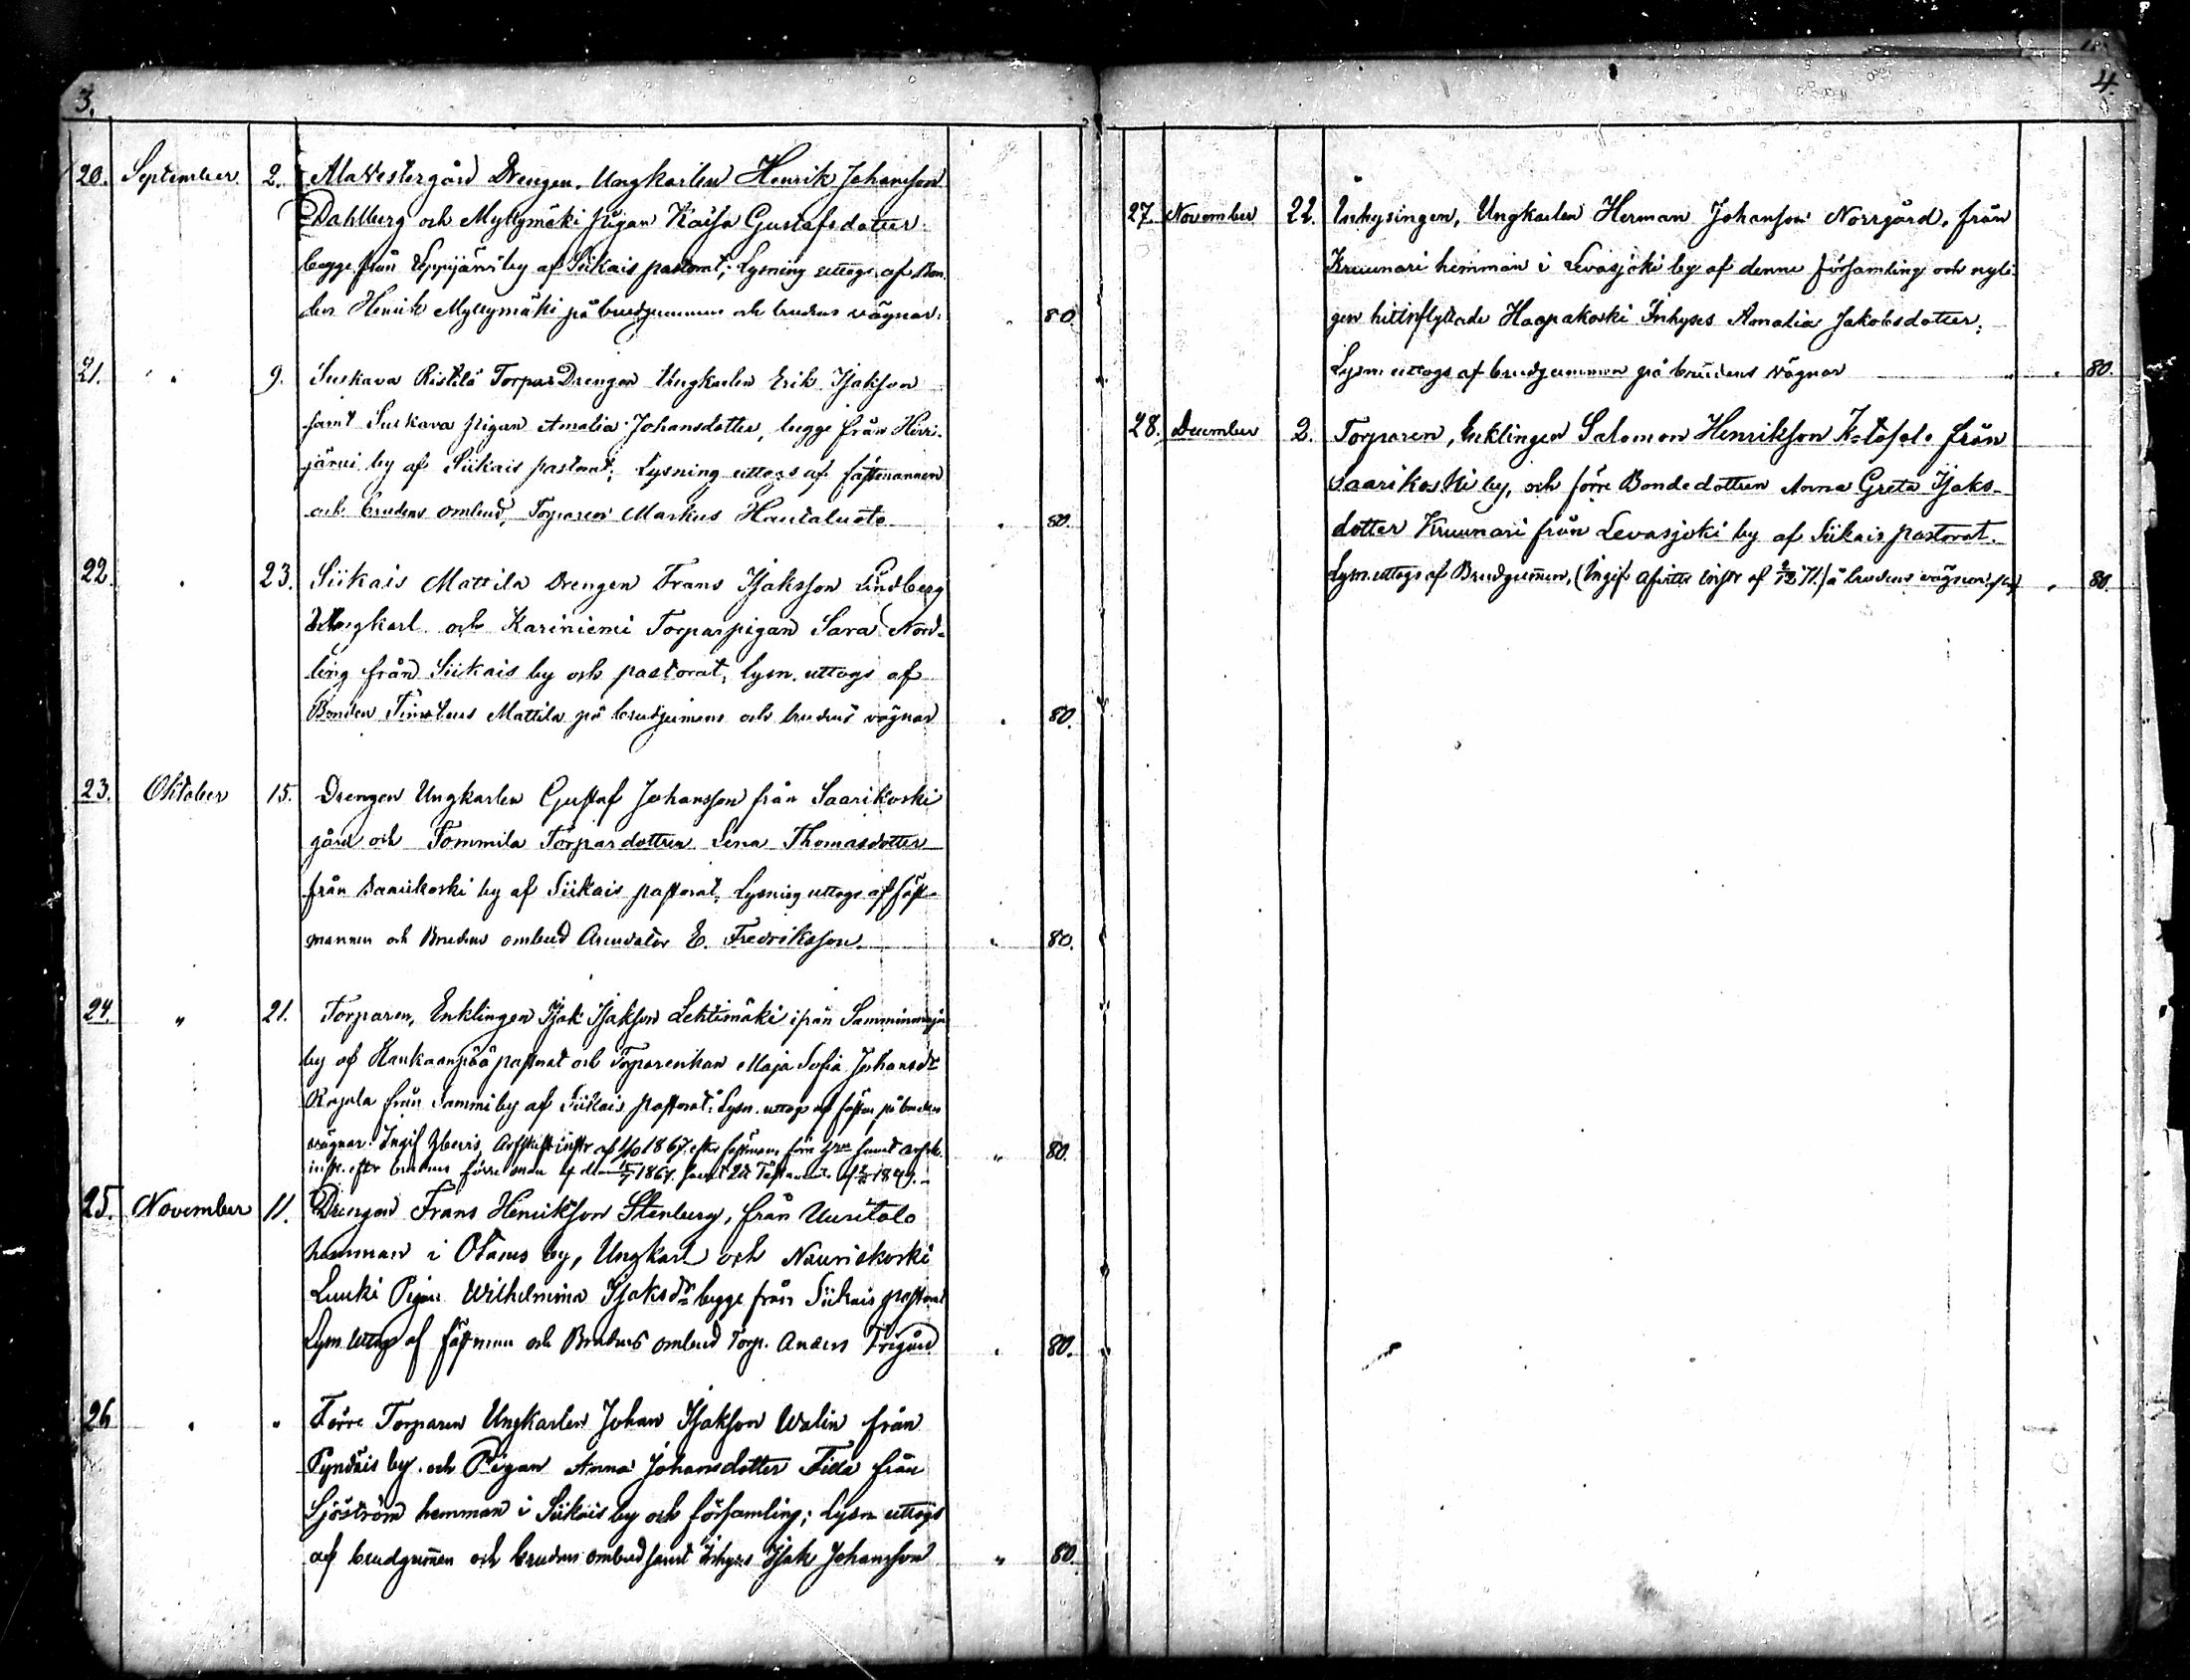 3.
20. September 2. Ala Westergård Drengen, Ungkarlen Henrik Johansson
Dahlberg och Myllymäki pigan Kaisa Gustafsdotter
begge från Leppijärvi by af Siikais pastorat; Lysning uttogs af Bon
den Henrik Myllymäki på brudgummens och brudens vägnar. " 80.
21. " 9. Suskava Ristilä Torpar Drengen Ungkarlen Erik Isaksson
samt Suskava pigan Amalia Johansdotter, begge från Hirvi-
järvi by af Siikais pastorat; Lysning uttogs af fästemannen
och brudens ombud, Torparen Markus Hautaluoto " 80.
22. " 23. Siikais Mattila Drengen Frans Isaksson Lindberg
Ungkarl och Kariniemi Torparpigan Sara Nord-
ling från Siikais by och pastorat, lysn. uttogs af
Bonden Timoteus Mattila på brudgumens och brudens vägnar " 80.
23. Oktober 15. Drengen Ungkarlen Gustaf Johansson från Saarikoski
gård och Tommila Torpardottren Lena Thomasdotter
från Saarikoski by af Siikais pastorat, Lysning uttogs af fäst-
mannen och Brudens ombud Arendator E. Fredriksson " 80.
24. " 21. Torparen, Enklingen Isak Isaksson Lehtimäki ifrån
by af Kankaanpää pastorat och Torparenkan Maja Sofia Johansdr
Rajala från Sammi by af Siikais pastorat; Lysn. uttogs af fästm. på brudens
vägnar. Ingif. Arfskift. instr. af 1867 efter fästmans förra samt " 80.
instr. efter brudens förre man af den 1867. samt 1849.
25. November 11. Drengen Frans Henriksson Stenberg, från Uusitalo
hemman i Otamo by, Ungkarl och Nauriskoski
Luuki Pigan Wilhelmina Isaksdr begge från Siikais pastorat
Lysn. uttogs af fästman och Brudens ombud Torp. Anders Frigård " 80.
26 " " Förre Torparen Ungkarlen Johan Isaksson Walin från
Pyntäis by. och Pigan Anna Johansdotter från
Sjöström hemman i Siikais by och församling; Lysn uttogs
af brudgumen och brudens ombud samt Inhyses Isak Johansson " 80.
4.
27. November 22. Inhysingen, Ungkarlen Herman Johansson Norrgård, från
Kruunari hemman i Levasjoki by af denna församling och nyli-
gen hitinflyttade Haapakoski Inhyses Amalia Jakobsdotter;
Lysn. uttogs af brudgummen på brudens vägnar " 80.
28. December 2. Torparen, Enklingen Salomon Henriksson från
Saarikoski by, och förre Bondedottren Anna Greta Isaks-
dotter Kruunari från Levasjoki by af Siikais pastorat.
Lysn. uttogs af Brudgumen, (Ingif. instr af å brudens vägnar " 80.